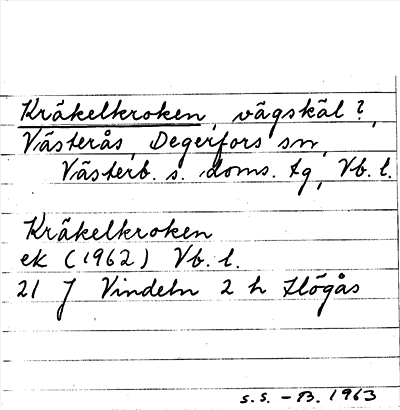 Kräkelkroken, vägskäl?,
Västerås, Degerfors sn,
Västerb. s. doms. tg, Vb. l.
Kräkelkroken
ek (1962) Vb. l.
21 J Vindeln 2 h Högås
s.s. - B. 1963